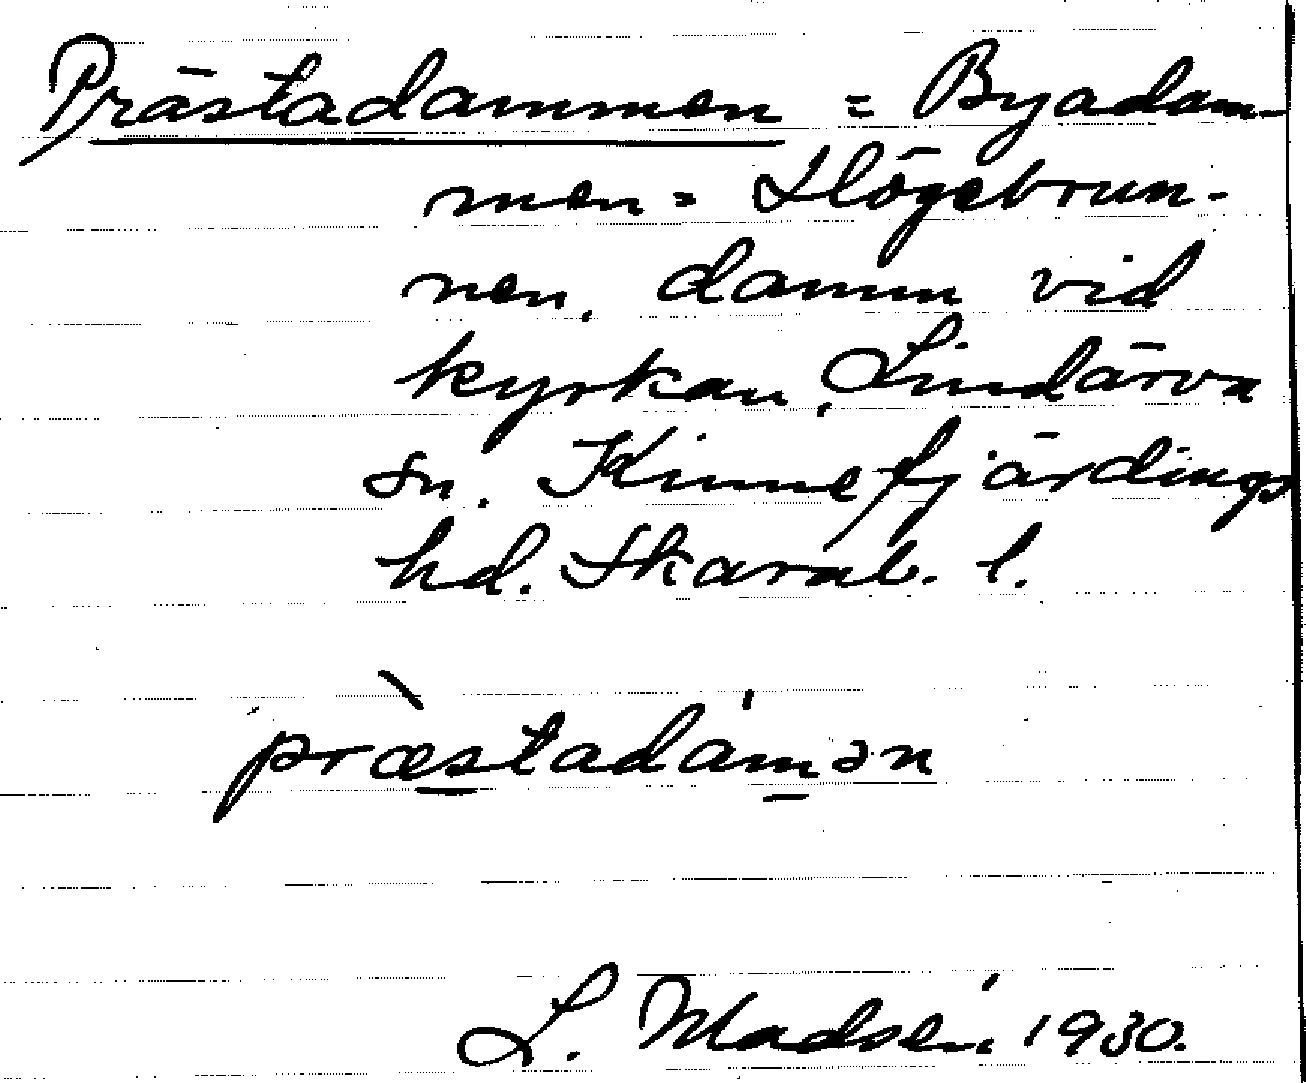 Prästadammen = Byadam-
men = Slögebrun-
nen, damm vid
kyrkan, Lindärva
sn. Kinnefjärdings
hd. Skarab. l.
præ̀stadámən
L. Madsén 1930.